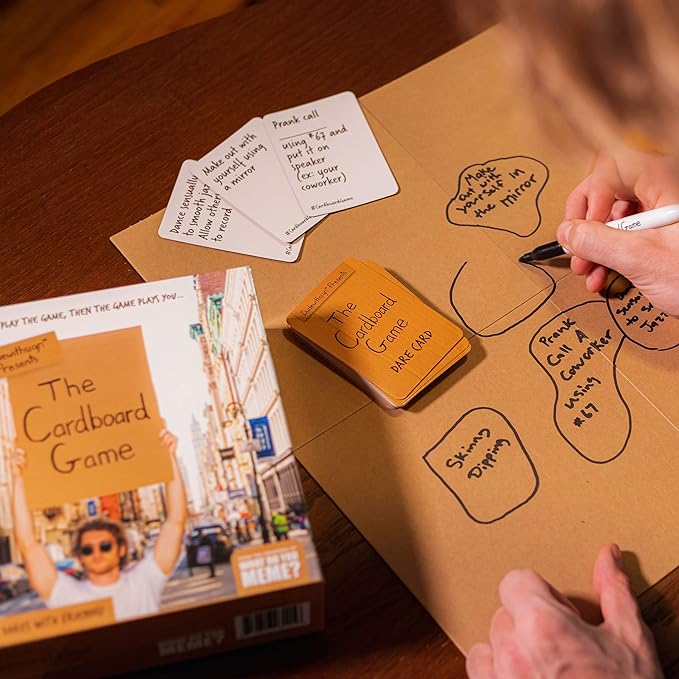 Dance sensually
to smooth jazz
Allow others
to record
Make out with
yourself using
a mirror
Prank call
using *67 and
put it on
speaker
(ex: your
coworker)
#CardboardGame
Make
out with
yourself in
the mirror
Dudewithsign™
Presents
The
Cardboard
Game
DARE CARD
Prank
Call A
Coworker
using
*67
Skinny
Dipping
PLAY THE GAME, THEN THE GAME PLAYS YOU...
Presents
The
Cardboard
Game
WHAT DO YOU
MEME?
Game